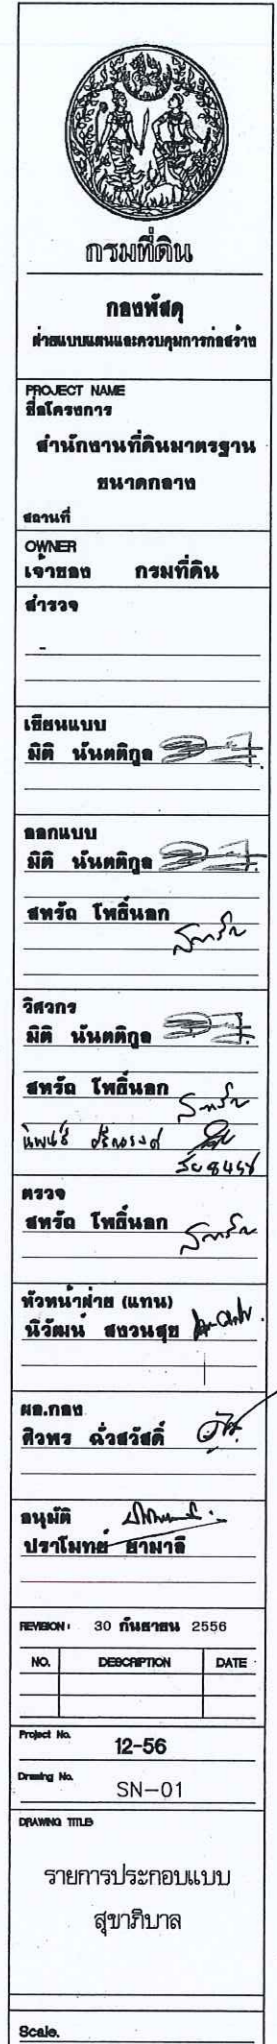 กรมที่ดิน
กองพัสดุ
ฝ่ายแบบแผนและควบคุมการก่อสร้าง
PROJECT NAME
ชื่อโครงการ
สำนักงานที่ดินมาตรฐาน
ขนาดกลาง
สถานที่
OWNER
เจ้าของ กรมที่ดิน
สำรวจ
-
เขียนแบบ
มิติ นันตติกูล
ออกแบบ
มิติ นันตติกูล
สหรัถ โพธิ์นอก
วิศวกร
มิติ นันตติกูล
สหรัถ โพธิ์นอก
ตรวจ
สหรัถ โพธิ์นอก
หัวหน้าฝ่าย (แทน)
นิวัฒน์ สงวนสุข
ผอ.กอง
ศิวพร ฉั่วสวัสดิ์
อนุมัติ
ปราโมทย์ ยามาลี
REVISION : 30 กันยายน 2556
NO. DESCRIPTION DATE
Project No.
12-56
Drawing No.
SN-01
DRAWING TITLE
รายการประกอบแบบ
สุขาภิบาล
Scale.